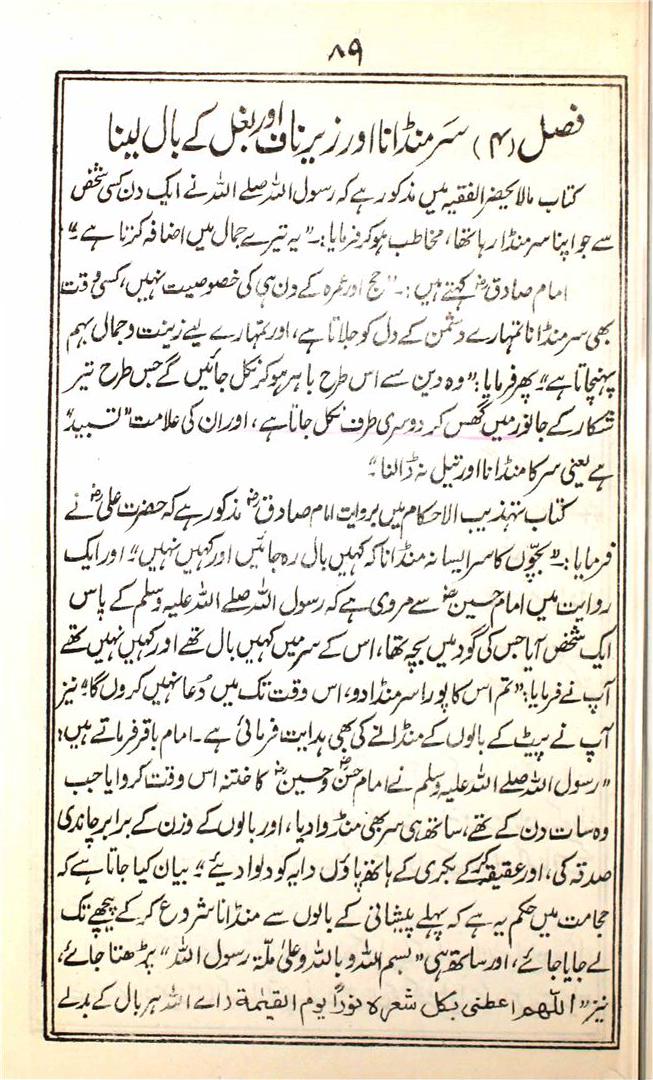 ۸۹
فصل (۴) سر منڈانا اور زیر ناف اور بغل کے بال لینا
کتاب مالا یحضر الفقیہ میں مذکور ہے کہ رسول اللہ صلے اللہ نے ایک دن کسی شخص
سے جو اپنا سر منڈا رہا تھا، مخاطب ہو کر فرمایا:۔ ”یہ تیرے جمال میں اضافہ کرتا ہے۔“
امام صادقؓ کہتے ہیں:۔ ”حج اور عمرہ کے دن ہی کی خصوصیت نہیں، کسی وقت
بھی سر منڈانا تمہارے دشمن کے دل کو جلاتا ہے، اور تمہارے لیے زینت و جمال بہم
پہنچاتا ہے“ پھر فرمایا: ”وہ دین سے اس طرح باہر ہو کر نکل جائیں گے جس طرح تیر
شکار کے جانور میں گھس کر دوسری طرف نکل جاتا ہے، اور ان کی علامت ”تسبید“
ہے یعنی سر کا منڈانا اور تیل نہ ڈالنا۔“
کتاب تہذیب الاحکام میں بروایت امام صادقؓ مذکور ہے کہ حضرت علیؓ نے
فرمایا:۔ ”بچوں کا سر ایسا نہ منڈانا کہ کہیں بال رہ جائیں اور کہیں نہیں“ اور ایک
روایت میں امام حسینؓ سے مروی ہے کہ رسول اللہ صلے اللہ علیہ وسلم کے پاس
ایک شخص آیا جس کی گود میں بچہ تھا، اس کے سر میں کہیں بال تھے اور کہیں نہیں تھے
آپ نے فرمایا: ”تم اس کا پورا سر منڈا دو، اس وقت تک میں دُعا نہیں کروں گا“ نیز
آپ نے پیٹ کے بالوں کے منڈانے کی بھی ہدایت فرمائی ہے۔ امام باقر فرماتے ہیں:
”رسول اللہ صلے اللہ علیہ وسلم نے امام حسنؓ و حسینؓ کا ختنہ اس وقت کروایا جب
وہ سات دن کے تھے، ساتھ ہی سر بھی منڈوا دیا، اور بالوں کے وزن کے برابر چاندی
صدقہ کی، اور عقیقہ کے بکری کے ہاتھ پاؤں دایہ کو دلوا دیئے“ بیان کیا جاتا ہے کہ
حجامت میں حکم یہ ہے کہ پہلے پیشانی کے بالوں سے منڈانا شروع کر کے پیچھے تک
لے جایا جائے، اور ساتھ ہی ”بسم اللہ و باللہ و علیٰ ملّۃ رسول اللہ“ پڑھتا جائے،
نیز ”اللّٰھم اعطنی بکل شعرۃ نوراً یوم القیٰمۃ (اے اللہ ہر بال کے بدلے